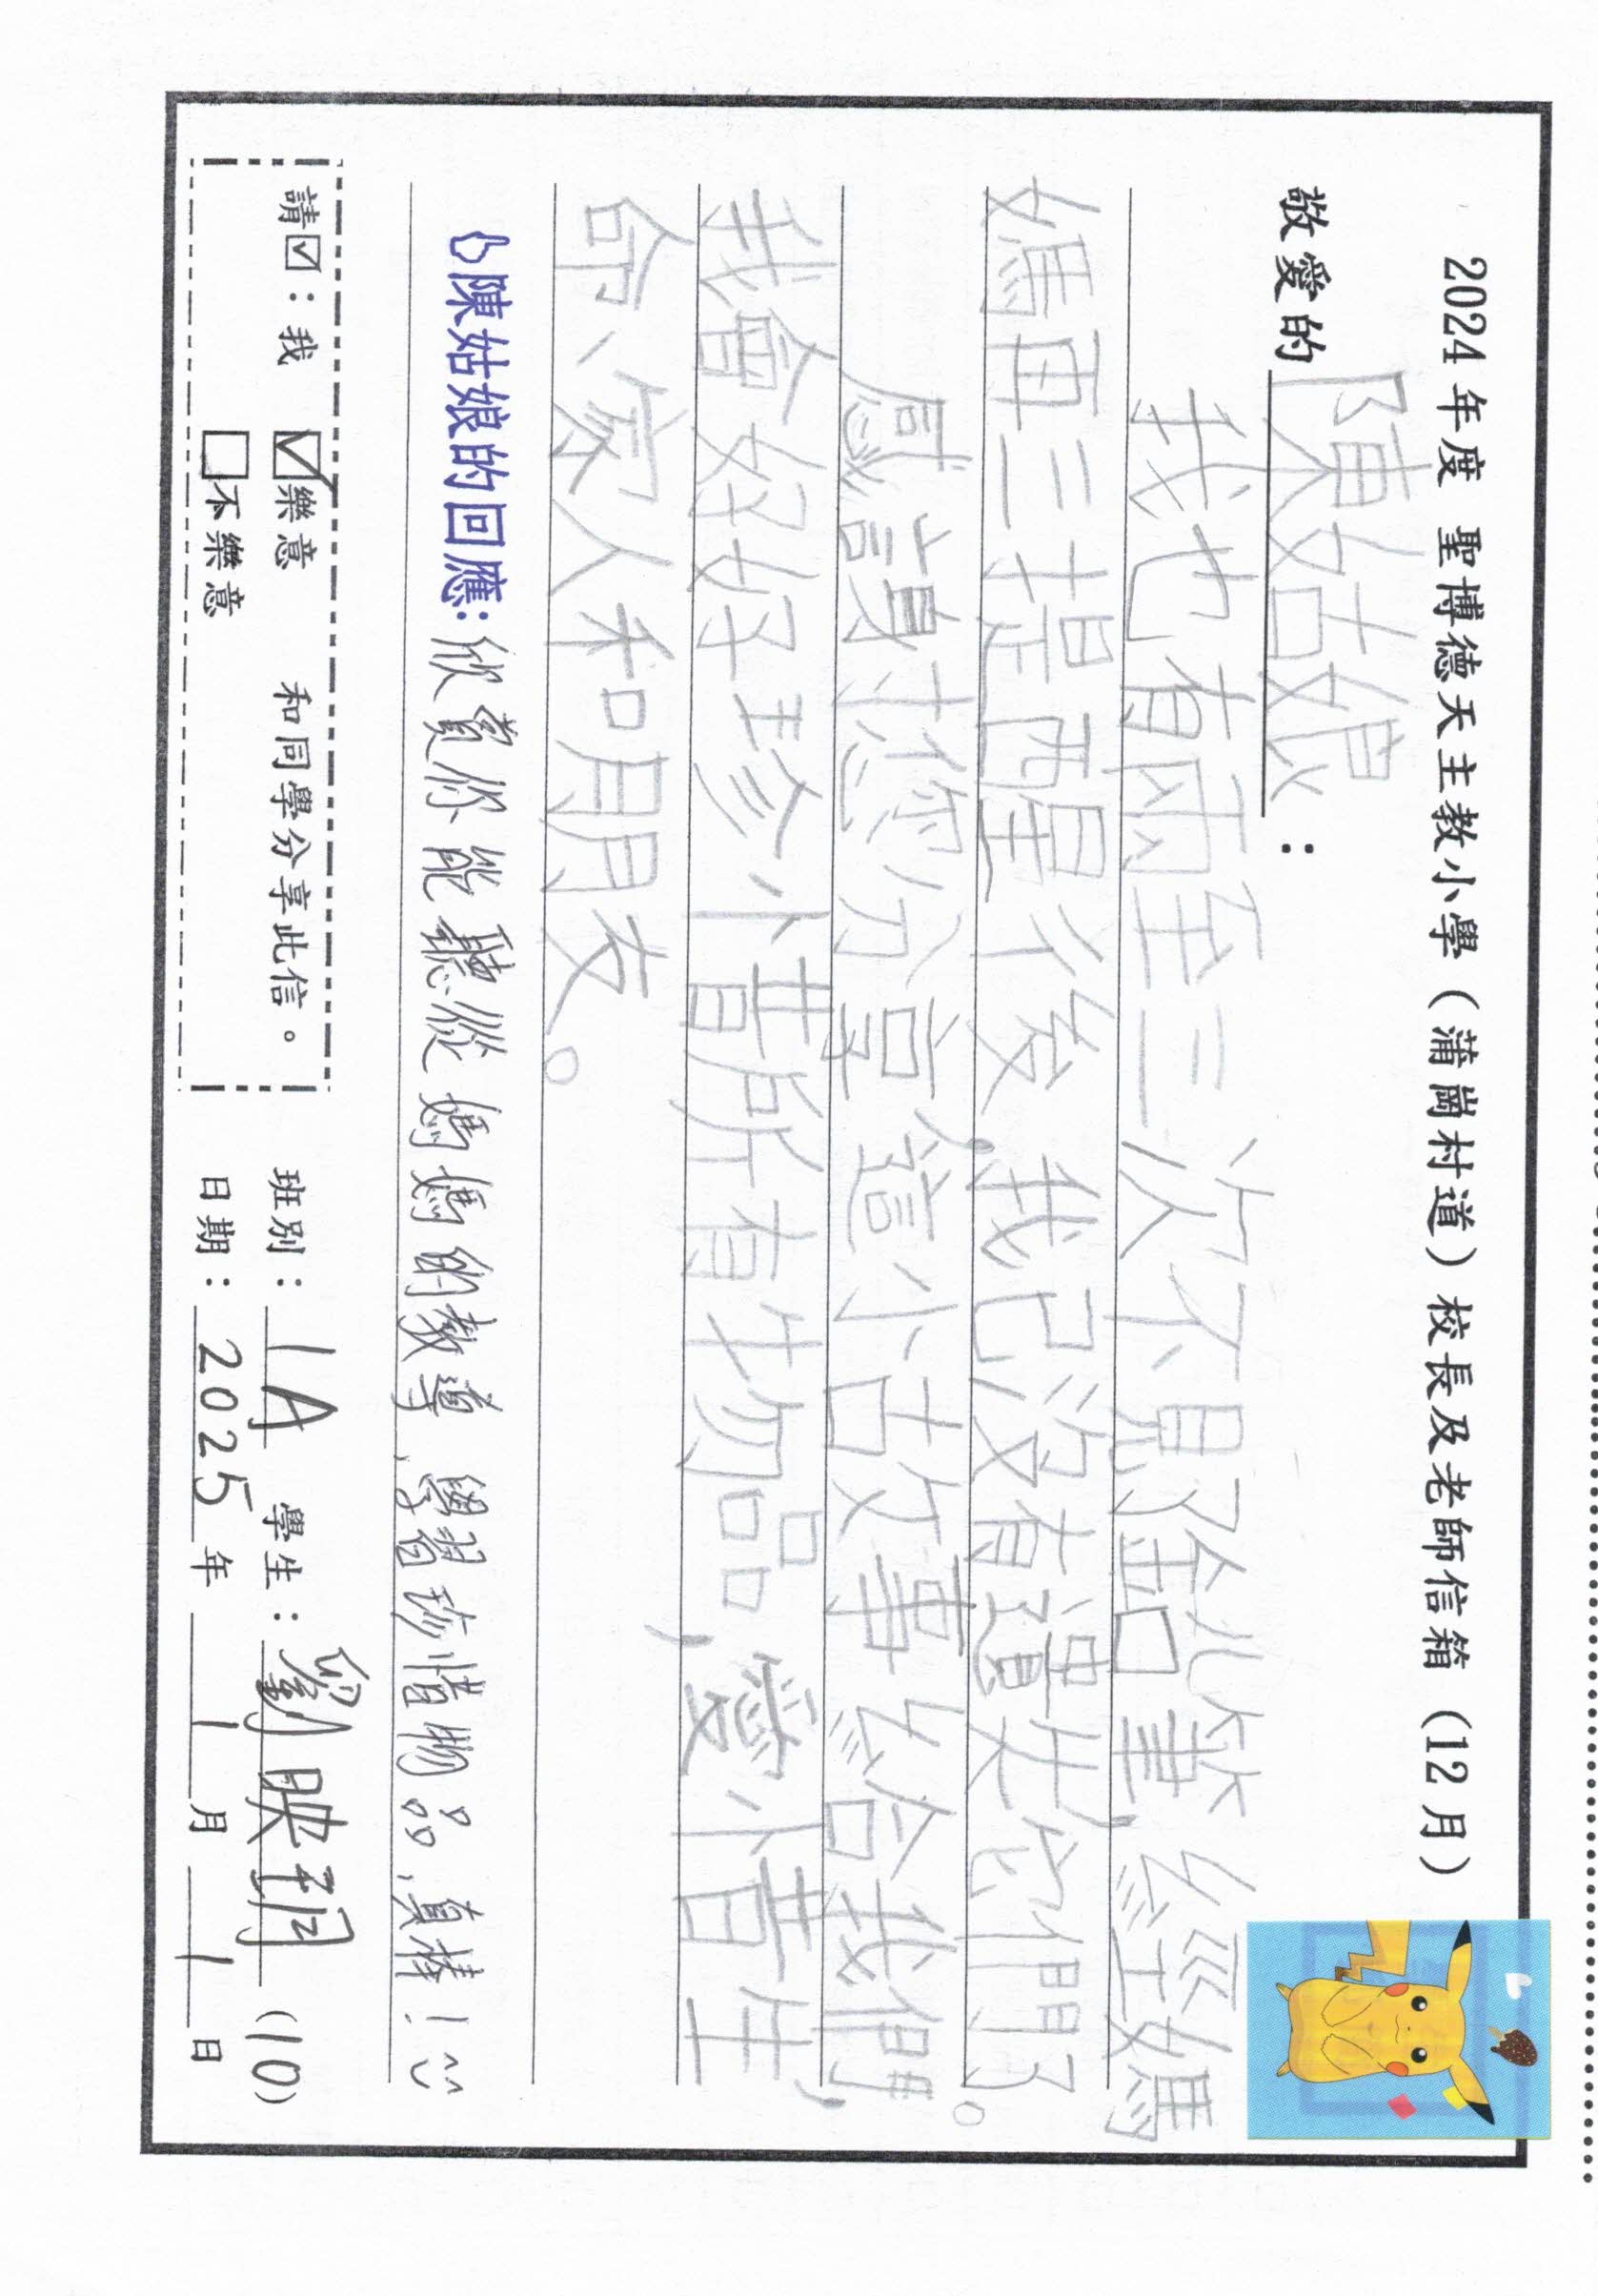 2024年度 聖博德天主教小學（蒲崗村道）校長及老師信箱（12月）
敬愛的陳姑娘：
我也有兩至三次不見鉛筆，經媽
媽再三提醒後，我己沒有遺失它們了。
感謝您分享這小故事給我們
我會好好珍惜所有物品，愛惜生
命、家人和朋友。
陳姑娘的回應：欣賞你能聽從媽媽的教導，學習珍惜物品，真棒！
請☑：我 ☑樂意 和同學分享此信。
□不樂意
班別：1A 學生：劉映翔（10）
日期：2025年1月1日